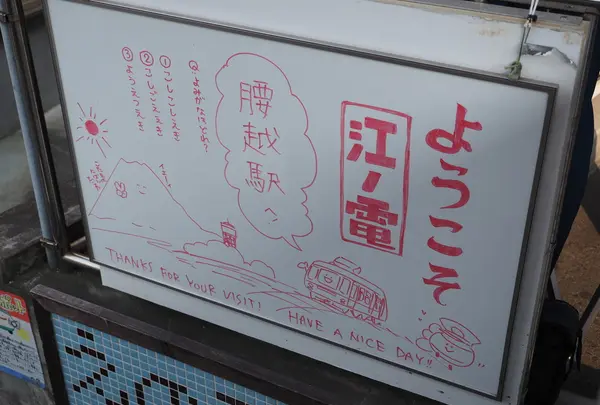 ようこそ
江ノ電
腰越駅へ
Q.よみかたはどれ?
① こしごしえき
② こしごええき
THANKS FOR YOUR VISIT!
HAVE A NICE DAY!!
えの